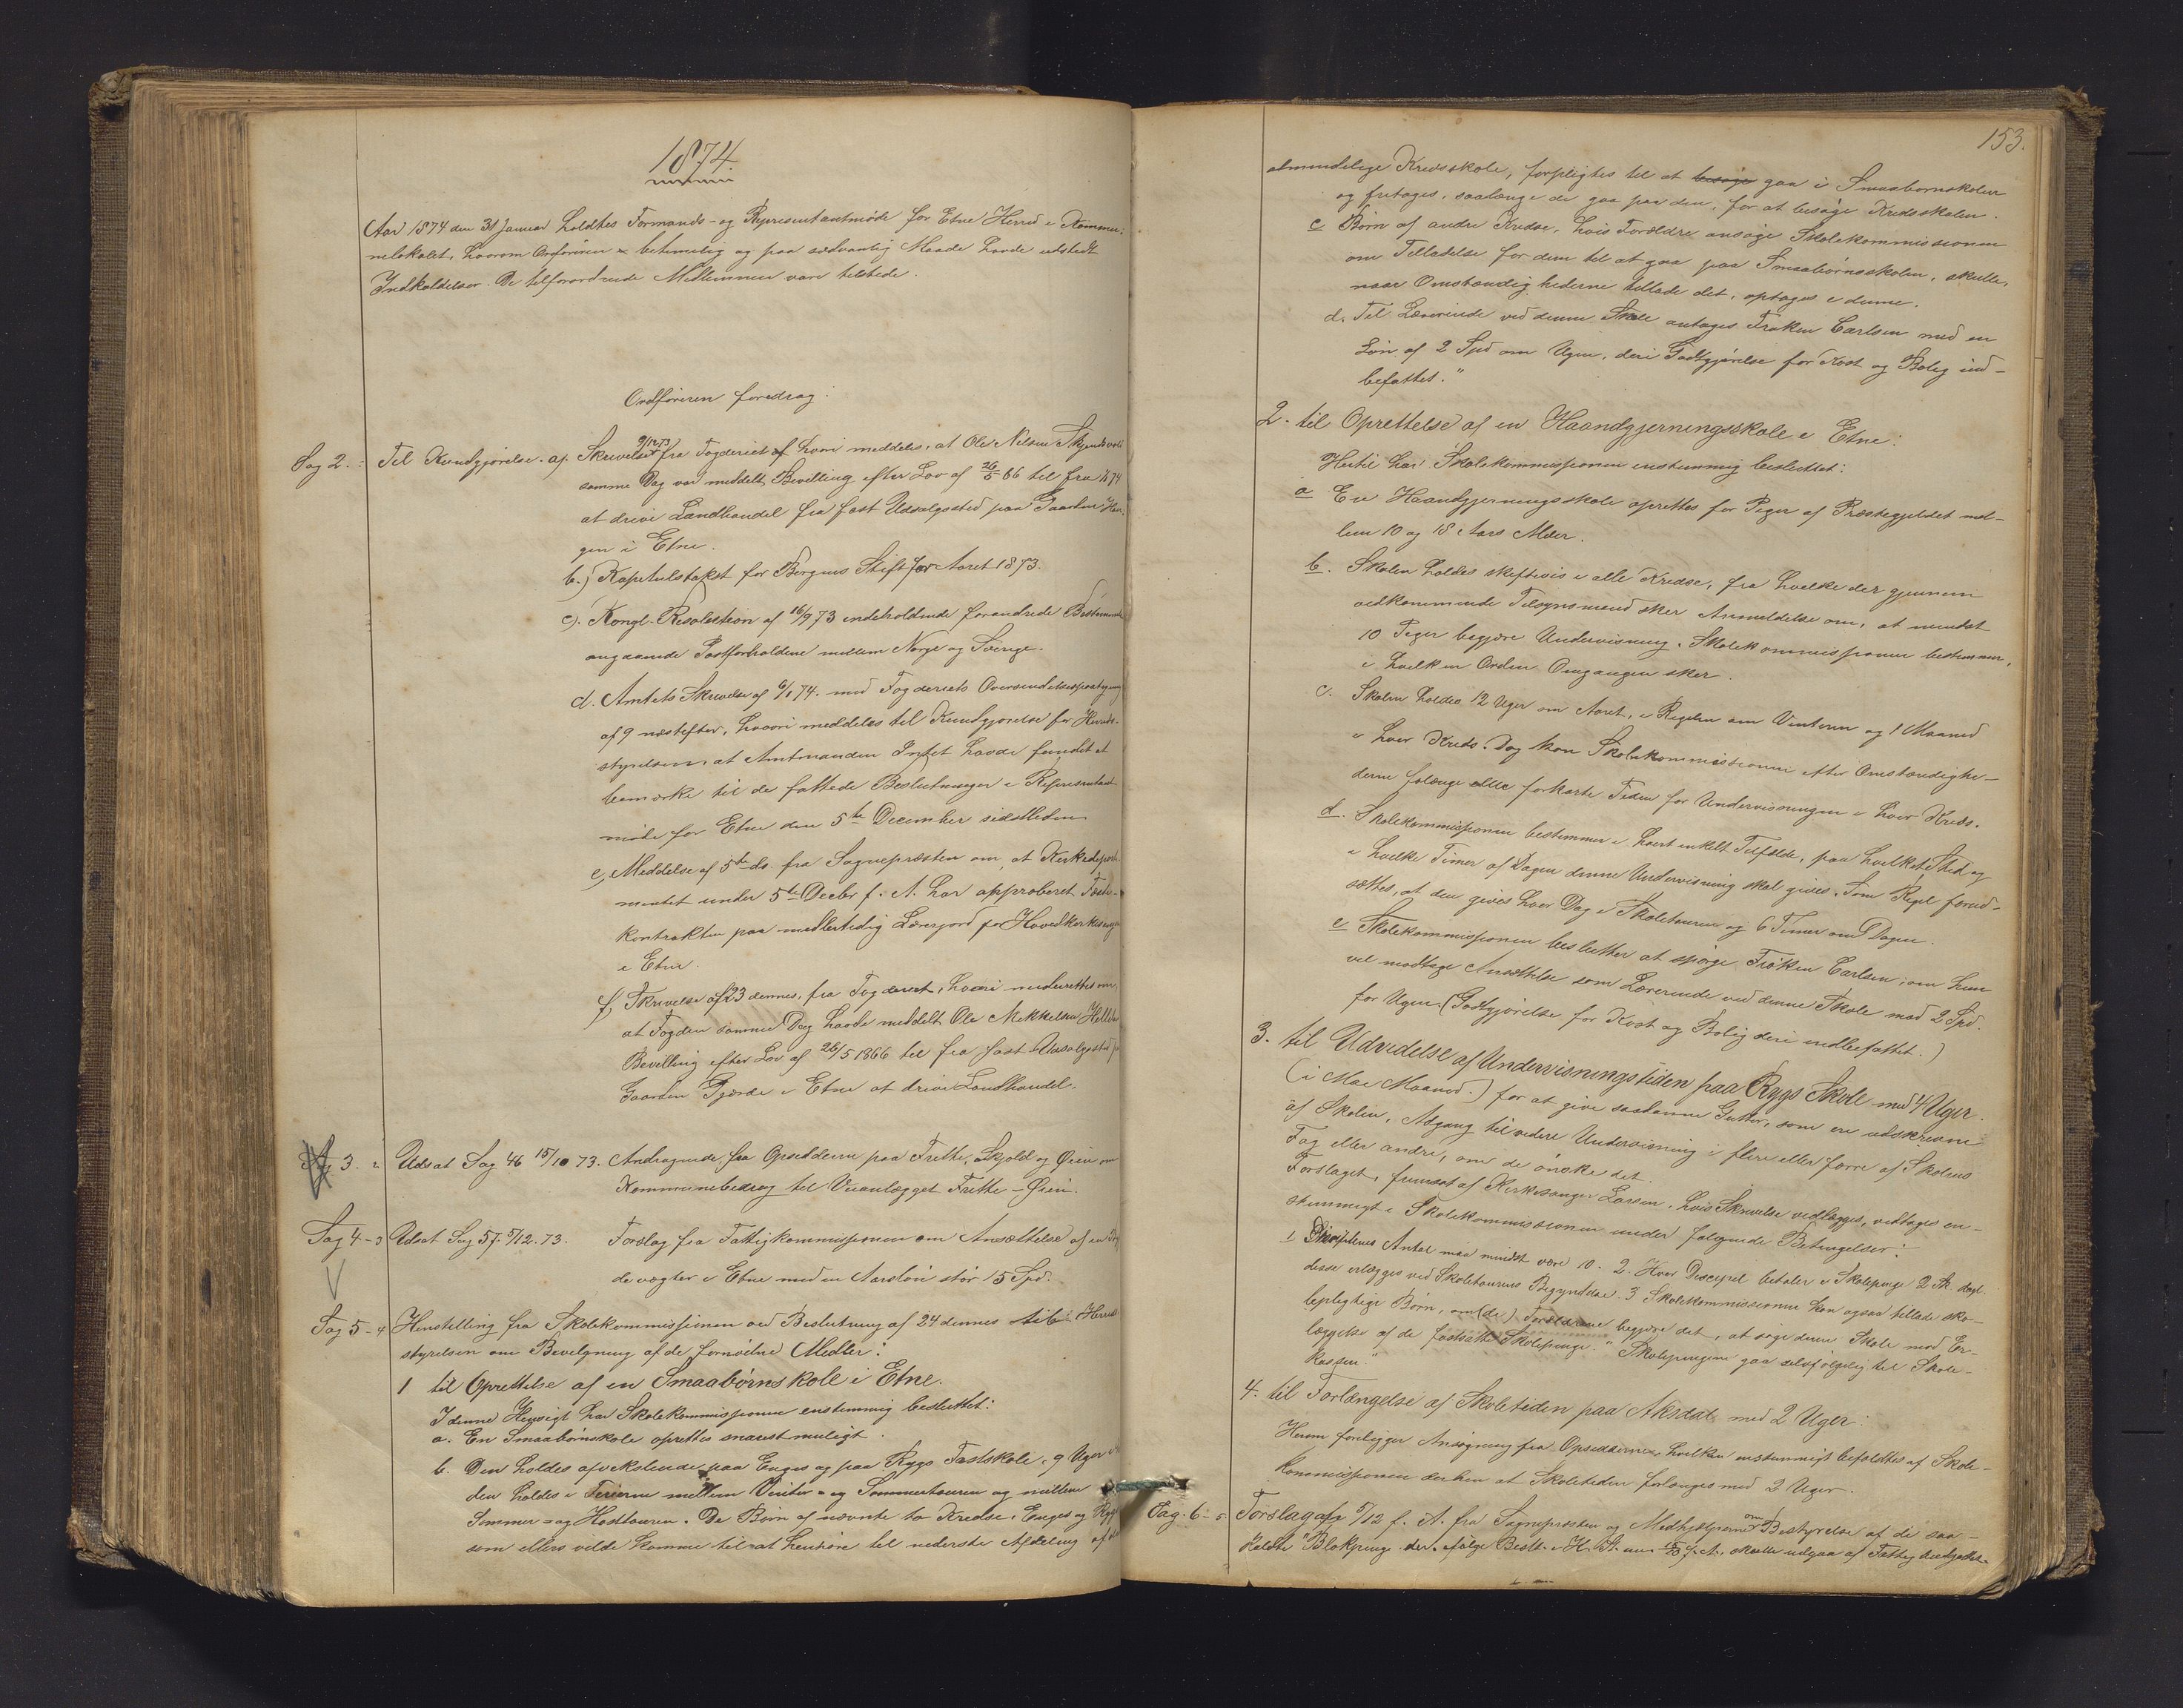 1874.
Aar 1874 den 31 Januar holdtes Formands- og Representantmöde for Etne Herred i Kommu-
nelokalet, hvorom Ordföreren betimelig og paa sædvanlig Maade havde udstedt
Indkaldelser. De tilforordnede Medlemmer vare tilstede.
Ordföreren foredrog:
Sag 2. : Til Kundgjörelse. a). Skrivelse 9/12 73 fra Fogderiet hvori meddeles, at Ole Nilsen
samme Dag var meddelt Bevilling efter Lov af 26/5 66 til fra 1874
at drive Landhandel fra fast Udsalgssted paa Gaarden
gen i Etne.
b.) Kapitelstakst for Bergens Stift for Aaret 1873.
c). Kongl. Resolution af 16/9 73 indeholdende forandrede Bestemmel
angaaende Postforholdene mellem Norge og Sverige.
d. Amtets Skrivelse af 6/1 74. med Fogderiets Oversendelsespaategning
af 9 næstefter, hvori meddeles til Kundgjörelse for Herreds-
styrelsen, at Amtmanden Intet havde fundet at
bemærke til de fattede Beslutninger i Representant
möde for Etne den 5te December sidstleden.
e, Meddelse af 5te ds. fra Sognepræsten om, at Kirkedepart-
mentet under 5te Decbr f. A. har approberet Fæste-
kontrakten paa midlertidig Lærerjord for Hovedkirkesogn
i Etne.
f, Skrivelse af 23 dennes, fra Fogderiet, hvori underrettes om,
at Fogden samme Dag havde meddelt Ole Mikkelsen
Bevilling efter Lov af 26/5 1866 til fra fast Udsalgssted
Gaarden Gjerde i Etne at drive Landhandel.
3. 2 Udsat Sag 46 15/10 73. Andragende fra Opsidderne paa Frette, Skjold og Öien om
Kommunebidrag til Veianlægget Frette-Öien.
Sag 4-3 Udsat Sag 57. 5/12. 73. Forslag fra Fattigkommissionen om Ansættelse af en
de vægter i Etne med en Aarslön stor 15 Spd.
Sag 5-4 Henstilling fra Skolekommissionen ved Beslutning af 24 dennes til Herreds
styrelsen om Bevilgning af de fornödne Midler:
1 til Oprettelse af en Smaabörnskole i Etne.
I denne Hensigt har Skolekommissionen enstemmig besluttet:
a. En Smaabörnskole oprettes snarest muligt.
b. Den holdes afvekslende paa Enges og paa Rygs Fastskole, 9 Uger
den holdes i Ferierne mellem Vinter- og Sommertouren og mellem
Sommer- og Hösttouren. De Börn af nævnte to Kredse, Enges og Rygs
som ellers vilde komme til at henhöre til nederste Afdeling af
153.
almindelige Kredsskole, forpligtes til at besöge gaa i Smaabornskolen
og fritages, saalænge de gaa paa den, for at besöge Kredsskolen.
c Börn af andre Kredse, hvis Forældre ansöge Skolekommissionen
om Tilladelse for dem til at gaa paa Smaabörnsskolen, skulle,
naar Omstændighederne tillade det, optages i denne.
d. Til Lærerinde ved denne Skole antages Fröken Carlsen med en
Lön af 2 Spd om Ugen, deri Godtgjörelse for Kost og Bolig ind-
befattet."
2. til Oprettelse af en Haandgjerningsskole i Etne:
Hertil har Skolekommissionen enstemmig besluttet:
a En Haandgjerningsskole oprettes for Piger af Præstegjeldet mel-
lem 10 og 18 Aars Alder.
b. Skolen holdes skiftevis i alle Kredse, fra hvilke der gjennem
vedkommende Tilsynsmænd sker Anmeldelse om, at mindst
10 Piger begjære Undervisning. Skolekommissionen bestemmer,
i hvilken Orden Omgangen sker.
c. Skolen holdes 12 Uger om Aaret, i Regelen om Vinteren og 1 Maaned
i hver Kreds. Dog kan Skolekommissionen efter Omstændighe-
derne forlænge eller forkorte Tiden for Undervisningen i hver Kreds.
d. Skolekommissionen bestemmer i hvert enkelt Tilfælde, paa hvilket Sted og
i hvilke Timer af Dagen denne Undervisning skal gives. Som Regel forud-
sættes, at den gives hver Dag i Skoletouren og 6 Timer om Dagen.
e Skolekommissionen beslutter at spörge Fröken Carlsen, om hun
vil modtage Ansættelse som Lærerinde ved denne Skole med 2 Spd.
for Ugen. (Godtgjörelse for Kost og Bolig deri indbefattet.)
3. til Udvidelse af Undervisningstiden paa Rygs Skole med 4 Uger.
(i Mai Maaned.) for at give saadanne Gutter, som ere udskrevne
af Skolen, Adgang til videre Undervisning i flere eller færre af Skolens
Fag eller andre, om de önske det.
Forslaget, fremsat af Kirkesanger Larsen, hvis Skrivelse vedlægges, vedtages en-
stemmigt i Skolekommissionen under fölgende Betingelser:
1 Disciplenes Antal maa mindst være 10. 2. Hver Discipel betaler i Skolepenge 2 Sk
disse erlægges ved Skoletourens Begyndelse. 3 Skolekommissionen kan ogsaa tillade sko-
lepligtige Börn, om (de) Forældrene begjære det, at söge denne Skole mod Er-
læggelse af de fastsatte Skolepenge." Skolepengene gaa selvfölgelig til Skole-
kassen."
4. til Forlængelse af Skoletiden paa Aksdal med 2 Uger:
Herom foreligger Ansögning fra Opsidderne, hvilken enstemmigt befaldtes af Skole-
kommissionen at Skoletiden forlænges med 2 Uger.
Sag. 6-5 Forslag af 5/12 f. A. fra Sognepræsten og Medhjælperne om Bestyrelse af de saa-
kaldte Blokpenge der, ifölge Beslt. i H. St. skulle udgaa af Fattig